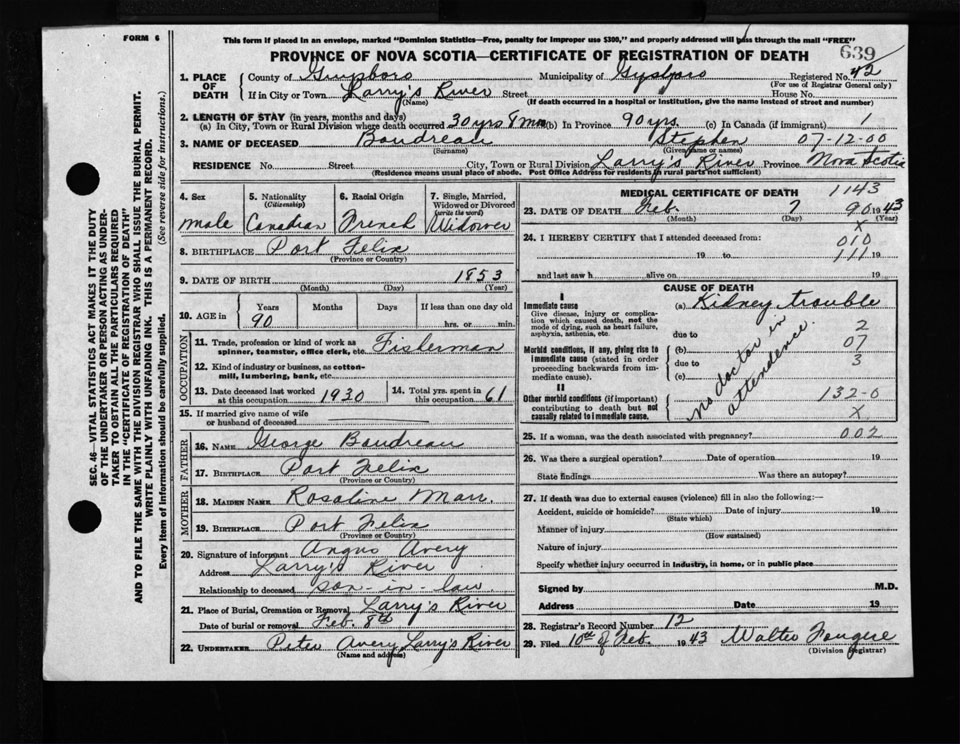 FORM 6
This form if placed in an envelope, marked "Dominion Statistics—Free, penalty for improper use $300," and properly addressed will pass through the mail "FREE"
PROVINCE OF NOVA SCOTIA—CERTIFICATE OF REGISTRATION OF DEATH
639
1. PLACE OF DEATH
County of Guysboro Municipality of Gysboro Registered No. 42
(For use of Registrar General only)
If in City or Town Larry's River Street House No.
(Name) (If death occurred in a hospital or institution, give the name instead of street and number)
2. LENGTH OF STAY (in years, months and days)
(a) In City, Town or Rural Division where death occurred 30 yrs 8 mos (b) In Province 90 yrs. (c) In Canada (if immigrant) 1
3. NAME OF DECEASED Boudreau Stephen 07-12-00
(Surname) (Given name or names)
RESIDENCE No. Street City, Town or Rural Division Larry's River Province Nova Scotia
(Residence means usual place of abode. Post Office Address for residents in rural parts not sufficient)
4. Sex male
5. Nationality (Citizenship) Canadian
6. Racial Origin French
7. Single, Married, Widowed or Divorced (write the word) Widower
8. BIRTHPLACE Port Felix
(Province or Country)
9. DATE OF BIRTH 1853
(Month) (Day) (Year)
10. AGE in Years 90 Months Days If less than one day old
hrs. or min.
OCCUPATION
11. Trade, profession or kind of work as spinner, teamster, office clerk, etc. Fisherman
12. Kind of industry or business, as cotton-mill, lumbering, bank, etc.
13. Date deceased last worked at this occupation 1930
14. Total yrs. spent in this occupation 61
15. If married give name of wife or husband of deceased
FATHER
16. NAME George Boudreau
17. BIRTHPLACE Port Felix
MOTHER
18. MAIDEN NAME Rosaline Marr.
19. BIRTHPLACE Port Felix
(Province or Country)
20. Signature of informant Angus Avery
Address Larry's River
Relationship to deceased son-in-law
21. Place of Burial, Cremation or Removal Larry's River
Date of burial or removal Feb. 8th
22. UNDERTAKER Peter Avery Larry's River
(Name and address)
MEDICAL CERTIFICATE OF DEATH 1143
23. DATE OF DEATH Feb. 7 90 1943
(Month) (Day) (Year)
X
24. I HEREBY CERTIFY that I attended deceased from: 010
19 to 111 19
and last saw h alive on 19
CAUSE OF DEATH
I
Immediate cause (a) Kidney trouble
Give disease, injury or complication which caused death, not the mode of dying, such as heart failure, asphyxia, asthenia, etc.
due to 2
Morbid conditions, if any, giving rise to immediate cause (stated in order proceeding backwards from immediate cause).
(b) 07
due to 3
(c)
no doctor in attendence.
II
Other morbid conditions (if important) contributing to death but not causally related to immediate cause.
132-0
X
25. If a woman, was the death associated with pregnancy? 002
26. Was there a surgical operation? Date of operation 19
State findings Was there an autopsy?
27. If death was due to external causes (violence) fill in also the following:—
Accident, suicide or homicide? Date of injury 19
(State which)
Manner of injury
(How sustained)
Nature of injury
Specify whether injury occurred in industry, in home, or in public place
Signed by M.D.
Address Date 19
28. Registrar's Record Number 12
29. Filed 10th of Feb. 1943 Walter Fougere
(Division Registrar)
SEC. 46—VITAL STATISTICS ACT MAKES IT THE DUTY
OF THE UNDERTAKER OR PERSON ACTING AS UNDER-
TAKER TO OBTAIN ALL THE PARTICULARS REQUIRED
IN THE "CERTIFICATE OF REGISTRATION OF DEATH"
AND TO FILE THE SAME WITH THE DIVISION REGISTRAR WHO SHALL ISSUE THE BURIAL PERMIT.
WRITE PLAINLY WITH UNFADING INK. THIS IS A PERMANENT RECORD.
Every item of information should be carefully supplied. (See reverse side for instructions.)